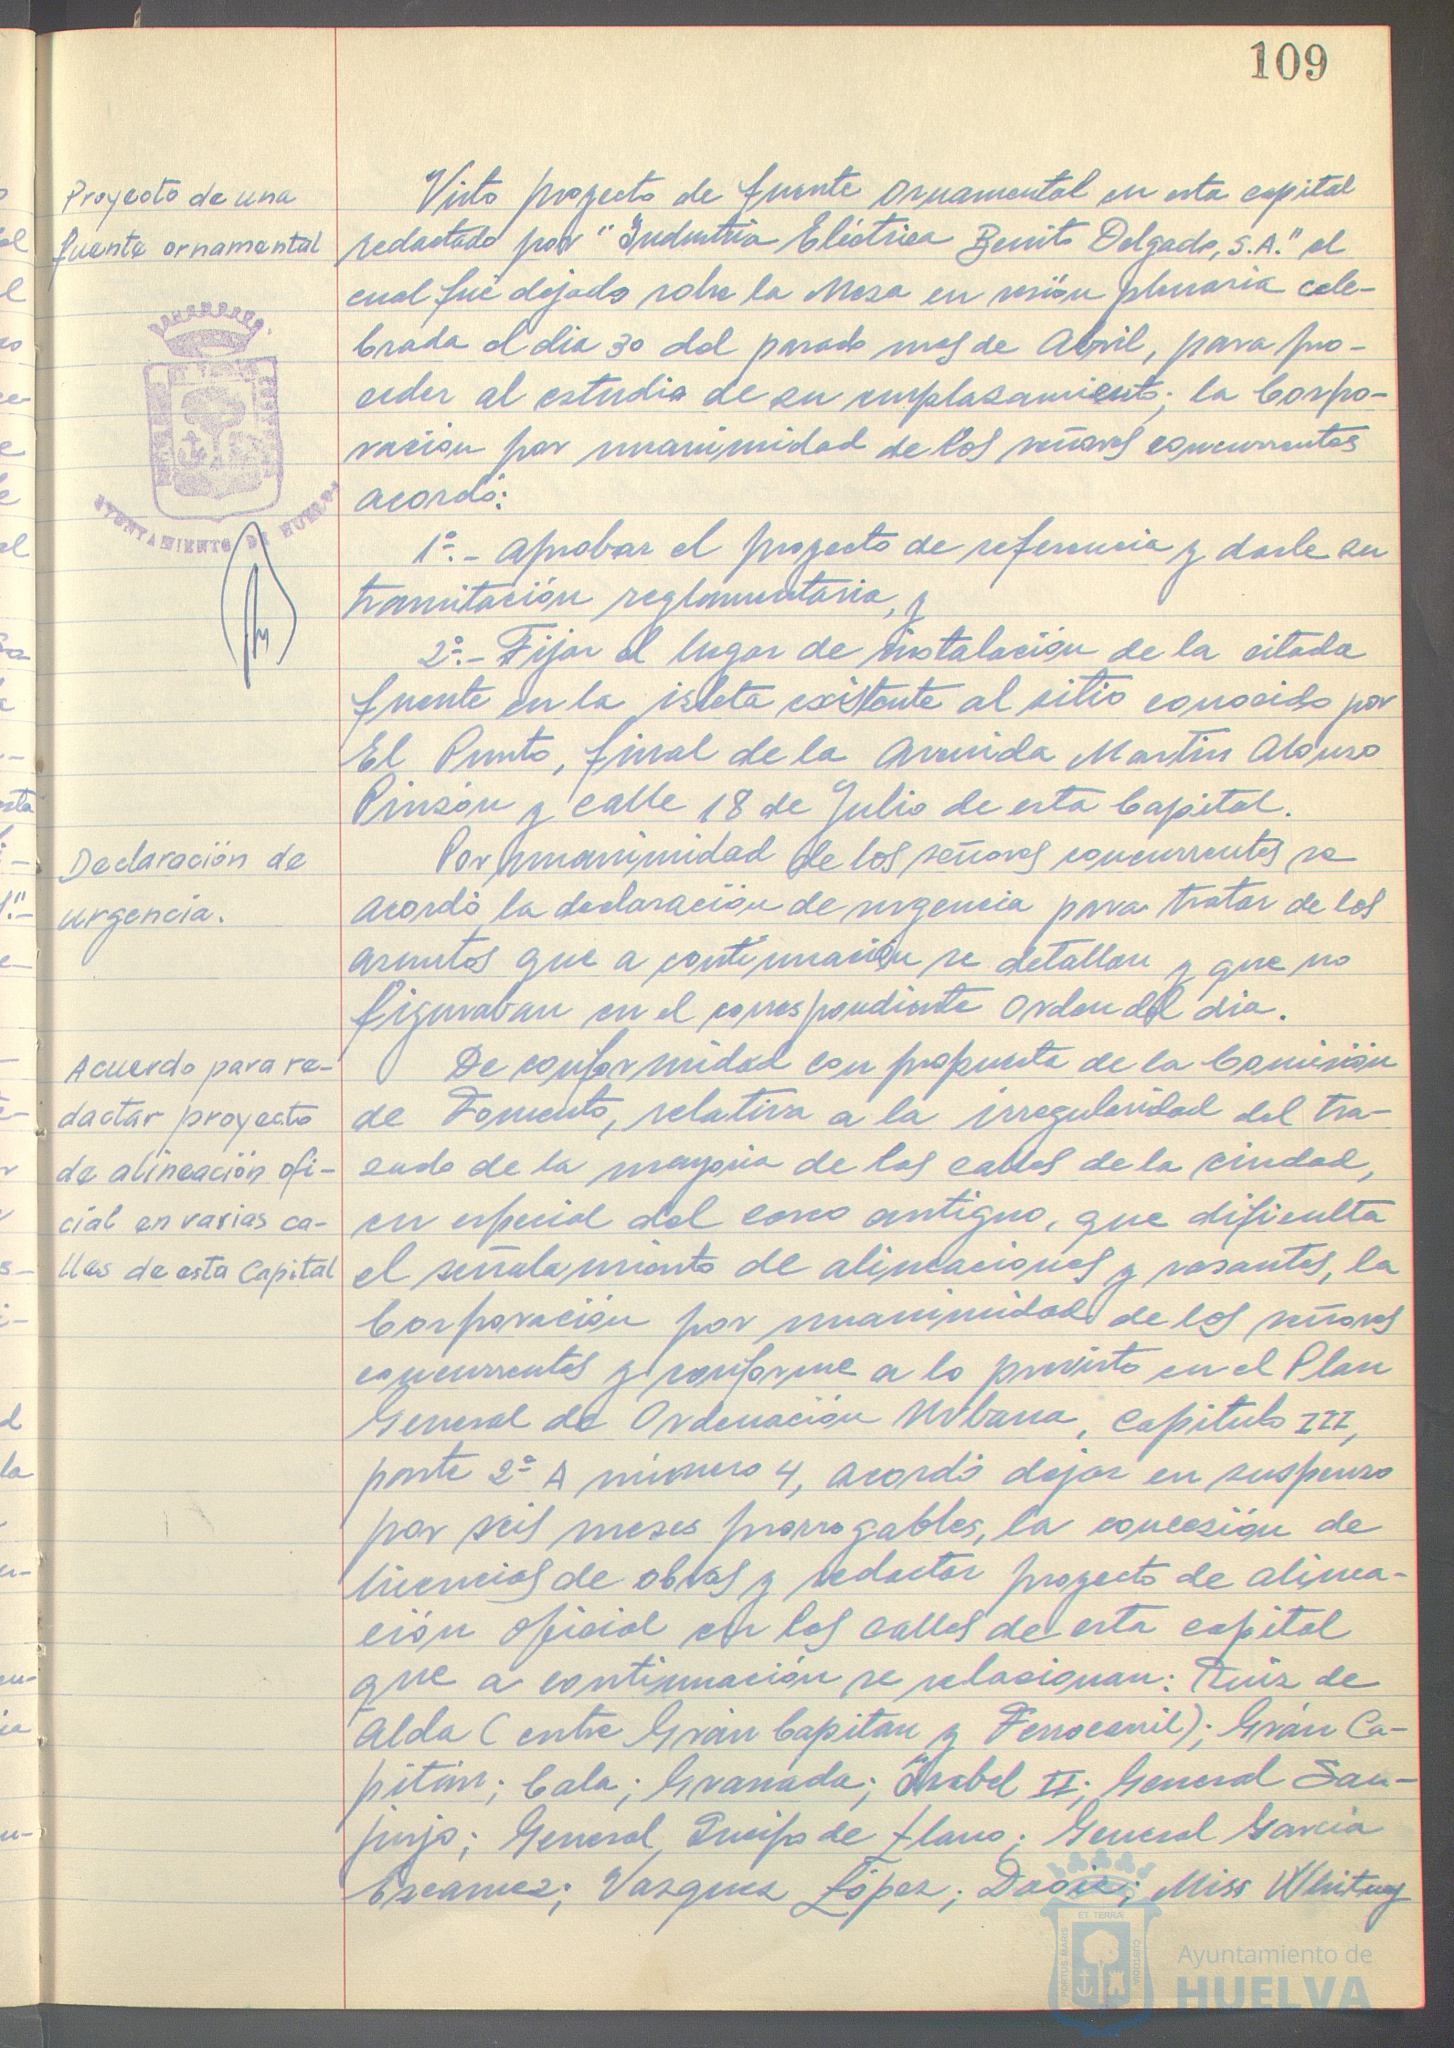 109
Proyecto de una
fuente ornamental
Visto proyecto de fuente ornamental en esta capital
redactado por "Industria Eléctrica Benito Delgado, S.A." el
cual fué dejado sobre la Mesa en sesión plenaria cele-
brada el dia 30 del pasado mes de Abril, para pro-
ceder al estudio de su emplazamiento; la Corpo-
ración por unanimidad de los señores concurrentes
acordó:
AYUNTAMIENTO DE HUELVA
1º.- Aprobar el proyecto de referencia y darle su
tramitación reglamentaria, y
2º.- Fijar el lugar de instalación de la citada
fuente en la isleta existente al sitio conocido por
El Punto, final de la Avenida Martin Alonso
Pinzón y calle 18 de Julio de esta Capital.
Declaración de
urgencia.
Por unanimidad de los señores concurrentes se
acordó la declaración de urgencia para tratar de los
asuntos que a continuación se detallan y que no
figuraban en el correspondiente Orden del dia.
Acuerdo para re-
dactar proyecto
de alineación ofi-
cial en varias ca-
lles de esta Capital
De conformidad con propuesta de la Comisión
de Fomento, relativa a la irregularidad del tra-
zado de la mayoria de las calles de la ciudad,
en especial del casco antiguo, que dificulta
el señalamiento de alineaciones y rasantes, la
Corporación por unanimidad de los señores
concurrentes y conforme a lo previsto en el Plan
General de Ordenación Urbana, Capitulo III,
parte 2ª A número 4, acordó dejar en suspenso
por seis meses prorrogables, la concesión de
licencias de obras y redactar proyecto de alinea-
ción oficial en las calles de esta capital
que a continuación se relacionan: Ruiz de
Alda (entre Gran Capitan y Ferrocarril); Grán Ca-
pitán; Cala; Granada; Isabel II; General San-
jurjo; General Queipo de Llano; General Garcia
Escamez; Vazquez López; Daoiz; Miss Whitney
ET TERRA
PORTUS MARIS
CUSTODIA
Ayuntamiento de
HUELVA